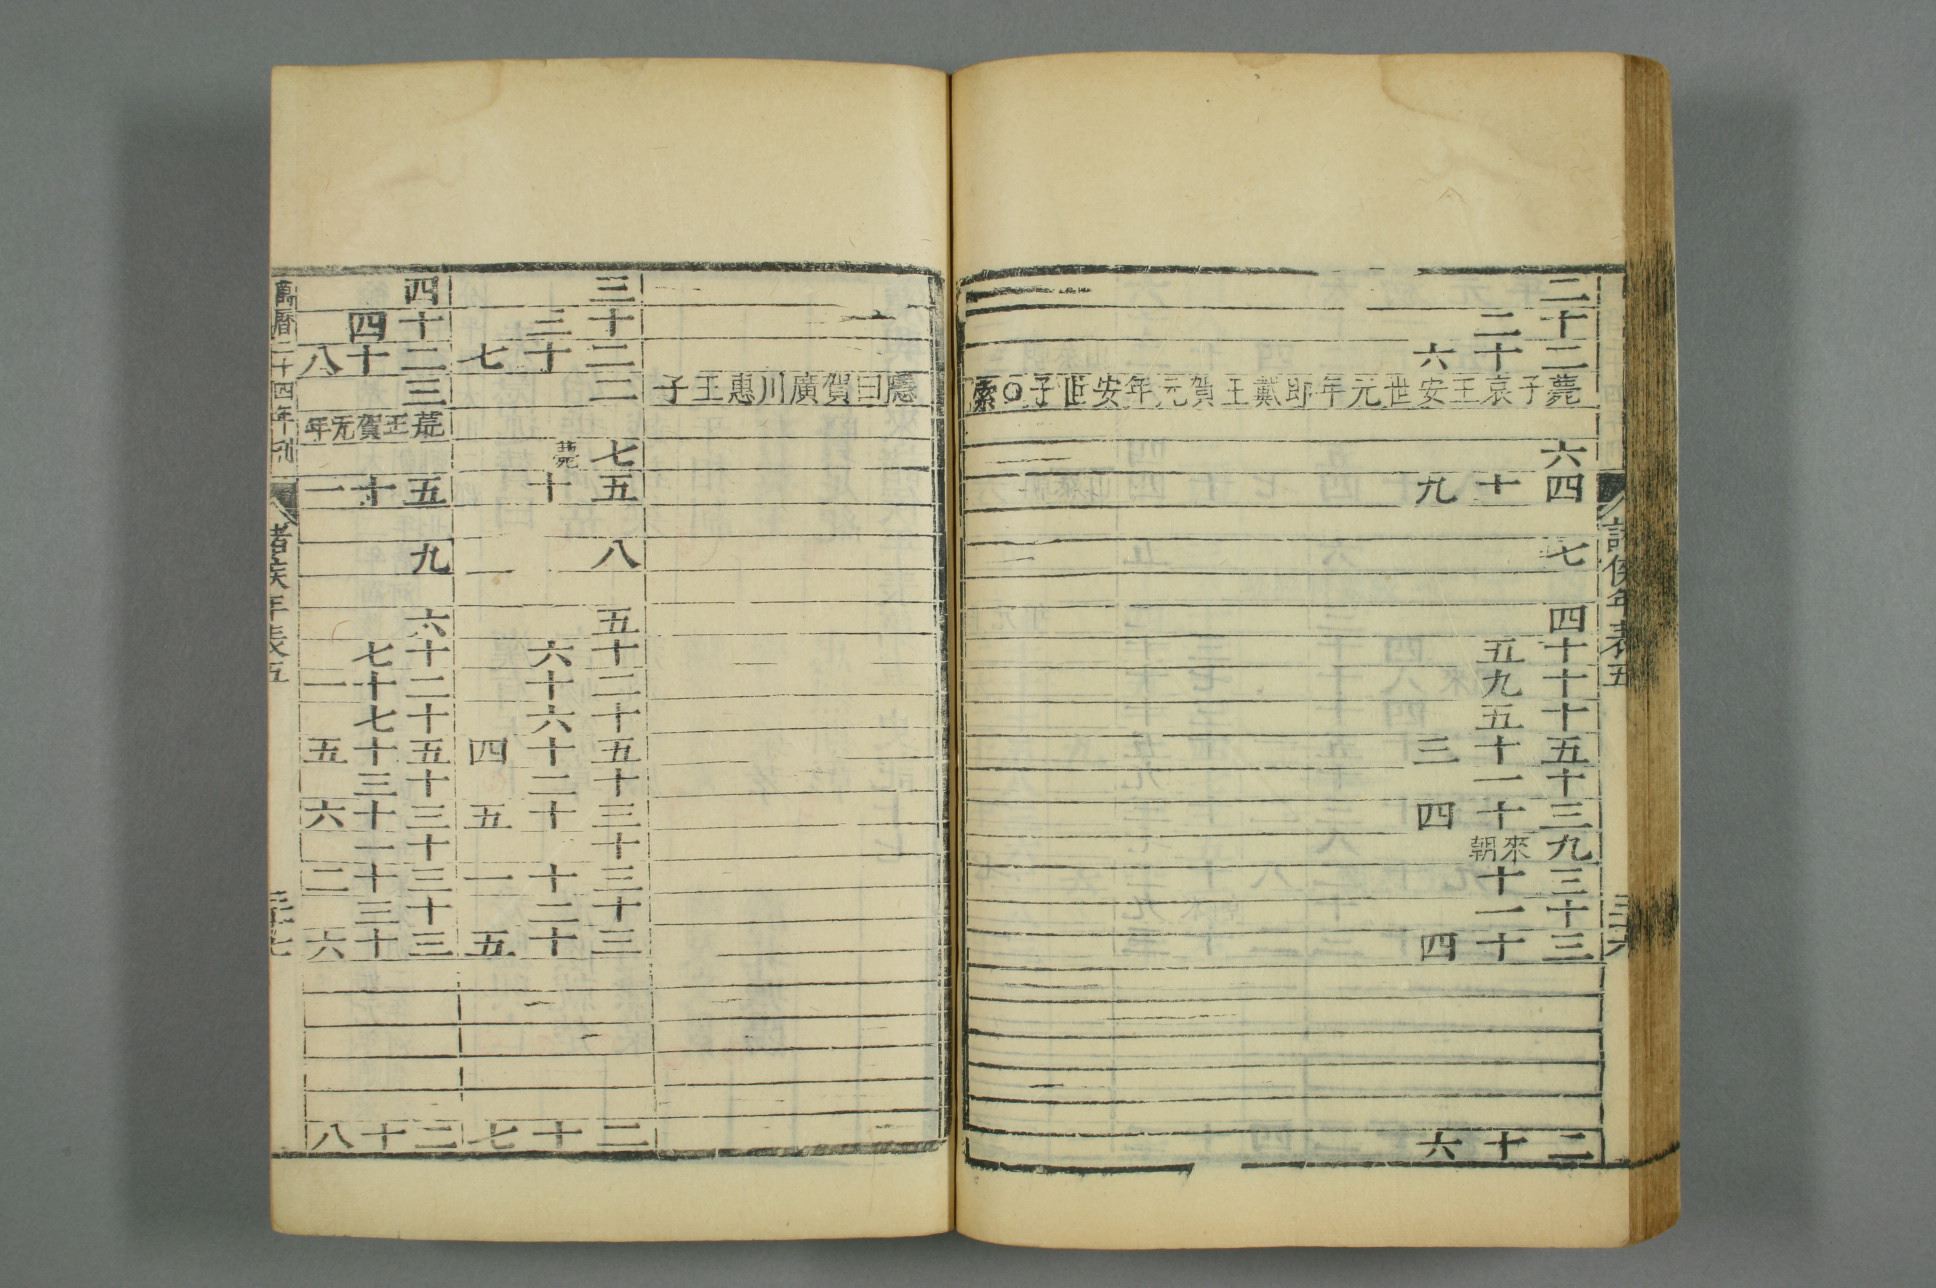 諸侯年表五
三十六
二
十二
二十六
薨子哀王安世元年即戴王賀元年安世子○索
六
四十九
七
四
十五
十九
十五
五十三
十一
三十四
九來朝
三十
十一
三十四
二十六
隱曰賀廣川惠王子
三
十三
二十七
二
七薨
五十
八
五
十六
二十
十六
五十四
十二
三十五
十
三十一
十二
三十五
二十七
四
十四
二十八
三
薨王賀元年
五十一
九
六
十七
二十一
十七
五十五
十三
三十六
十一
三十二
十三
三十六
二十八
萬曆二十四年刊
諸侯年表五
三十七